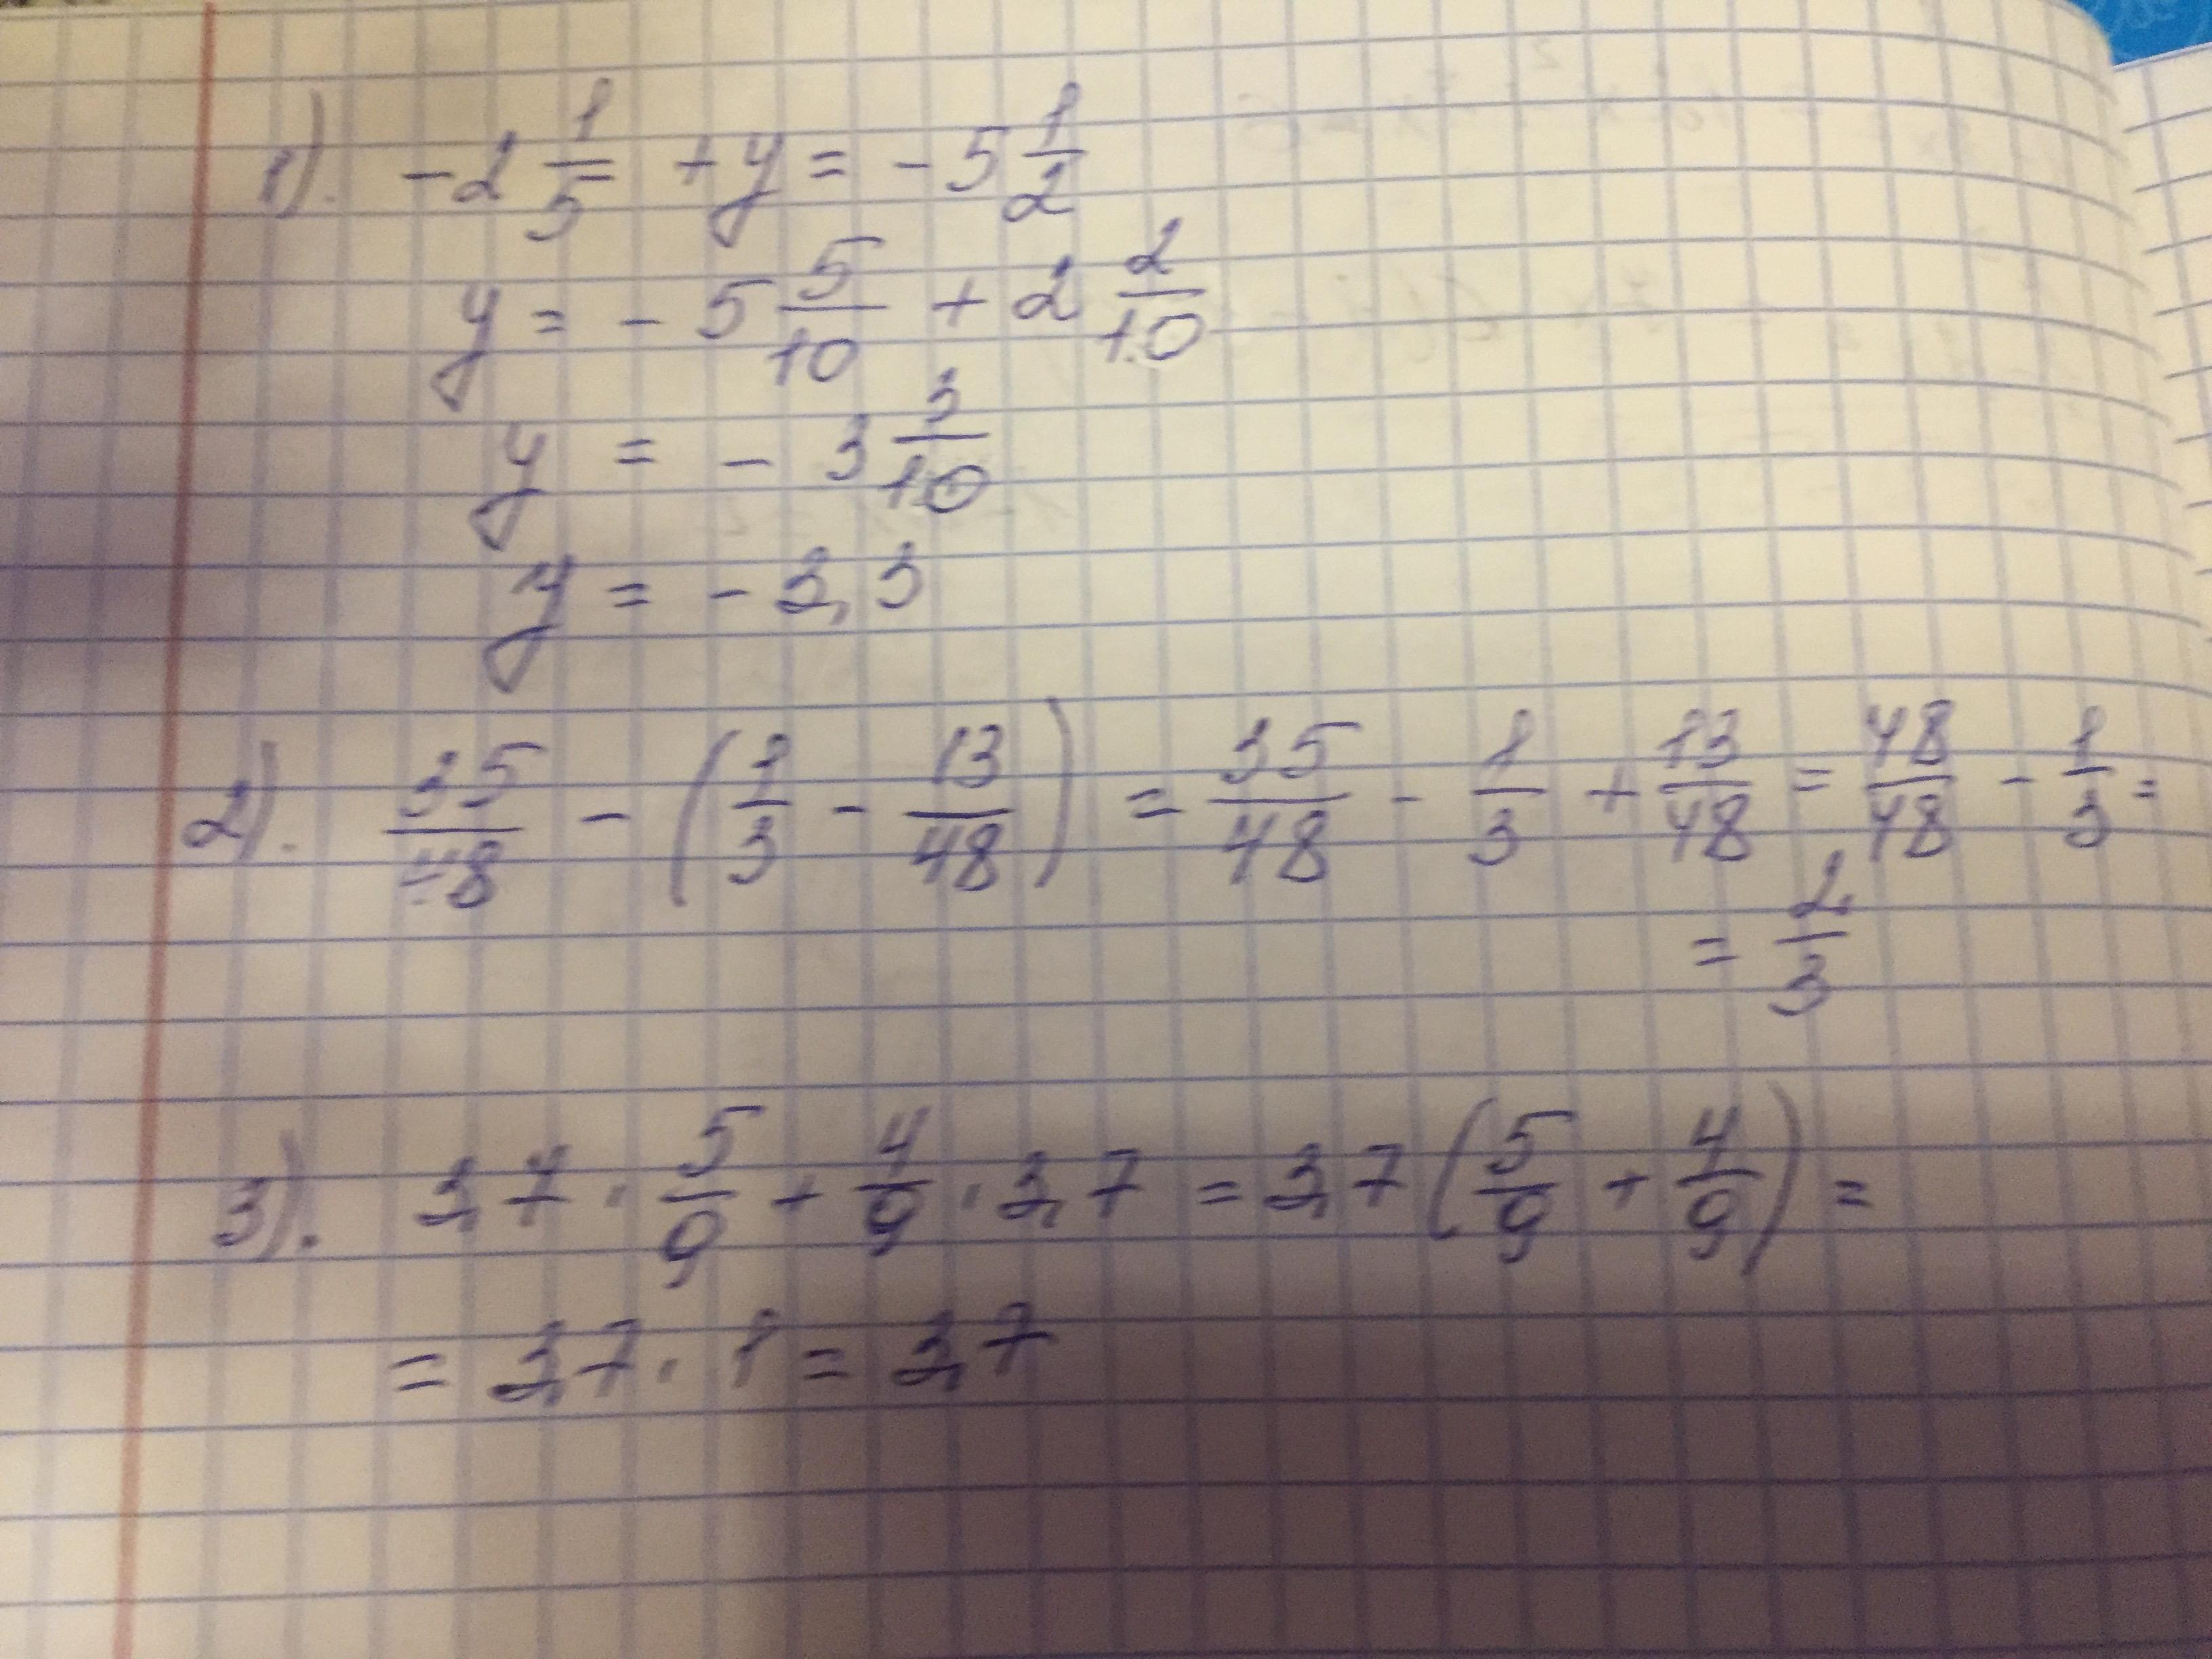 1). -2 1/5 + y = -5 1/2
y = -5 5/10 + 2 2/10
y = -3 3/10
y = -3,3
2). 35/48 - (1/3 - 13/48) = 35/48 - 1/3 + 13/48 = 48/48 - 1/3 =
= 2/3
3). 3,7 · 5/9 + 4/9 · 3,7 = 3,7 (5/9 + 4/9) =
= 3,7 · 1 = 3,7